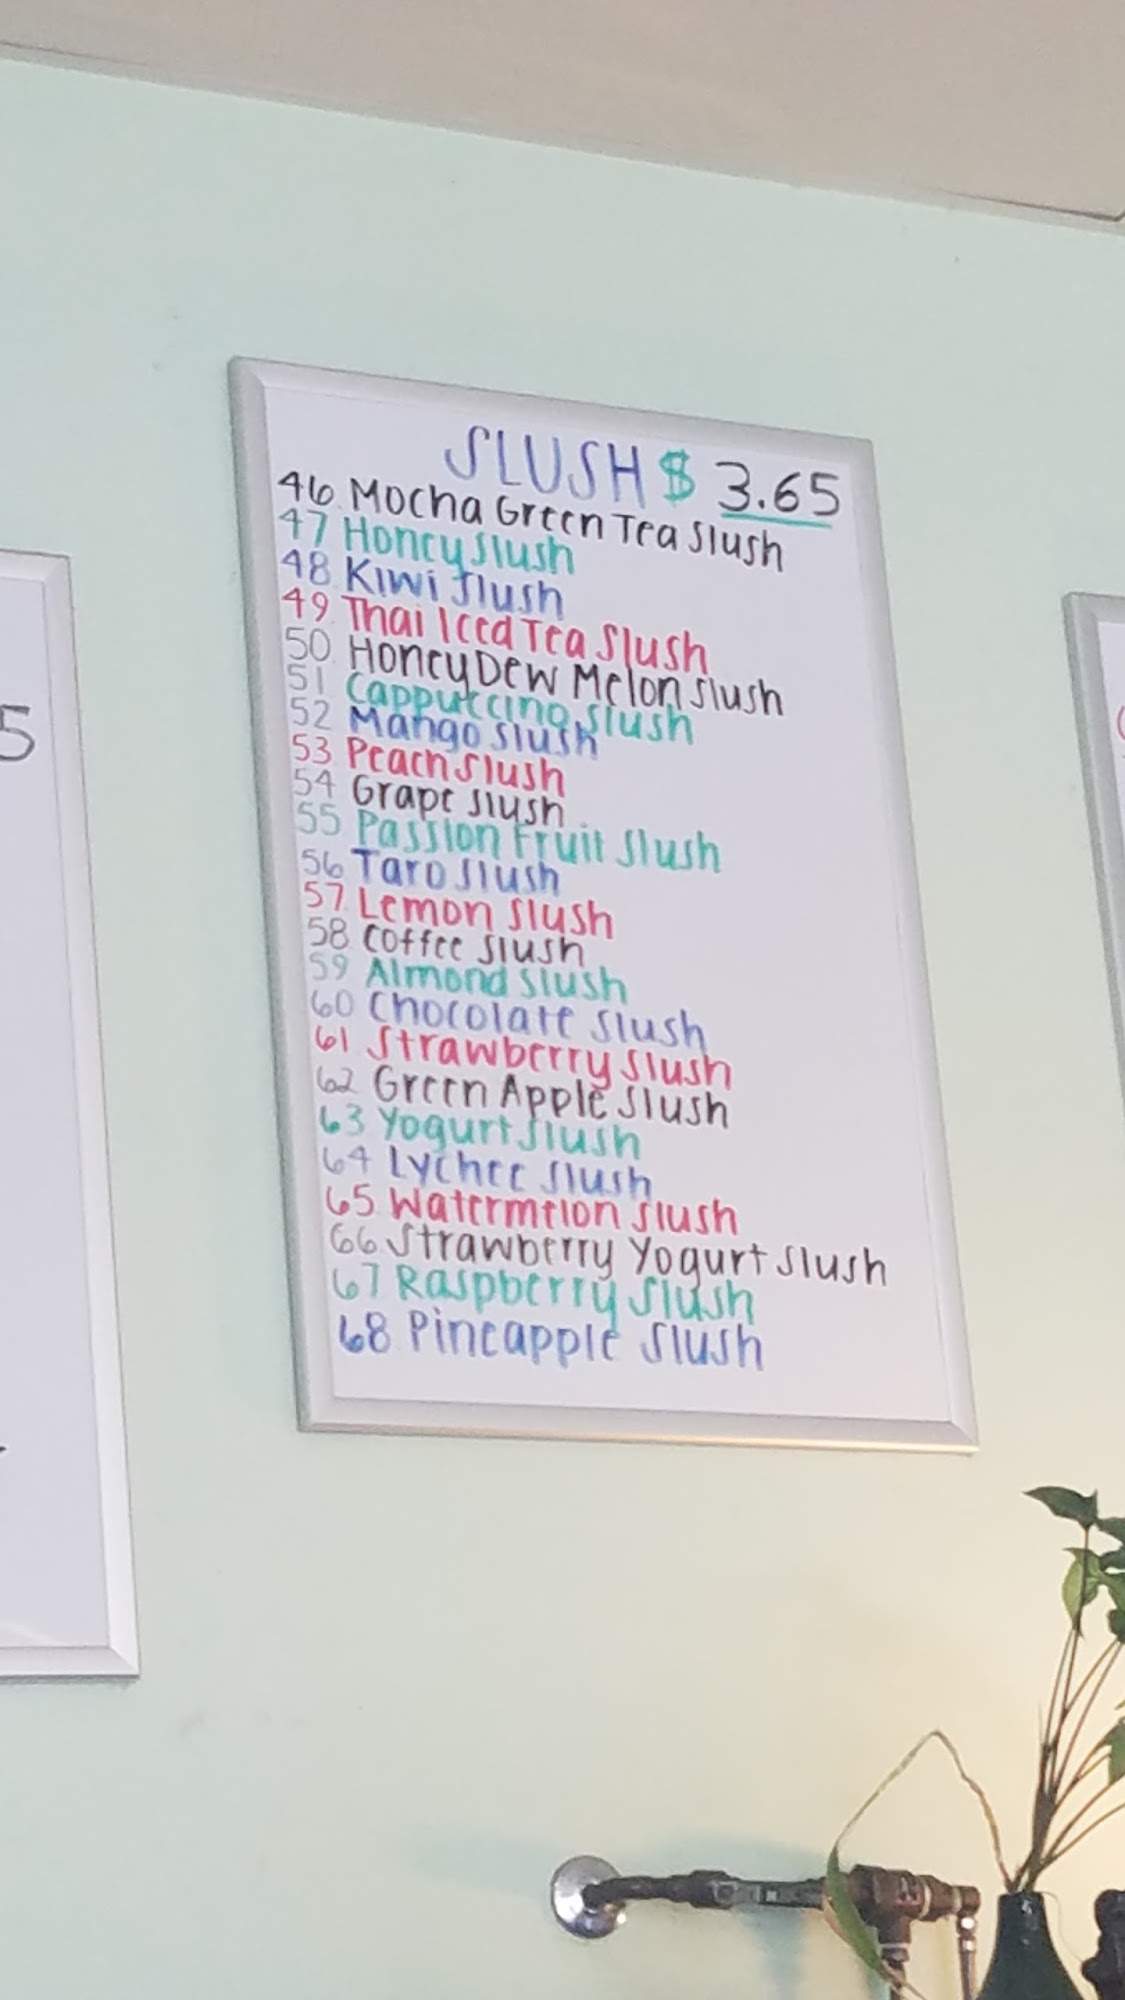 SLUSH $ 3.65
46. Mocha Green Tea Slush
47 Honey Slush
48 Kiwi Slush
49 Thai Iced Tea Slush
50 HoneyDew Melon Slush
51 Cappuccino Slush
52 Mango Slush
53 Peach Slush
54 Grape Slush
55 Passion Fruit Slush
56 Taro Slush
57 Lemon Slush
58 Coffee Slush
59 Almond Slush
60 Chocolate Slush
61 Strawberry Slush
62 Green Apple Slush
63 Yogurt Slush
64 Lychee Slush
65 Watermelon Slush
66 Strawberry Yogurt Slush
67 Raspberry Slush
68 Pineapple Slush
5